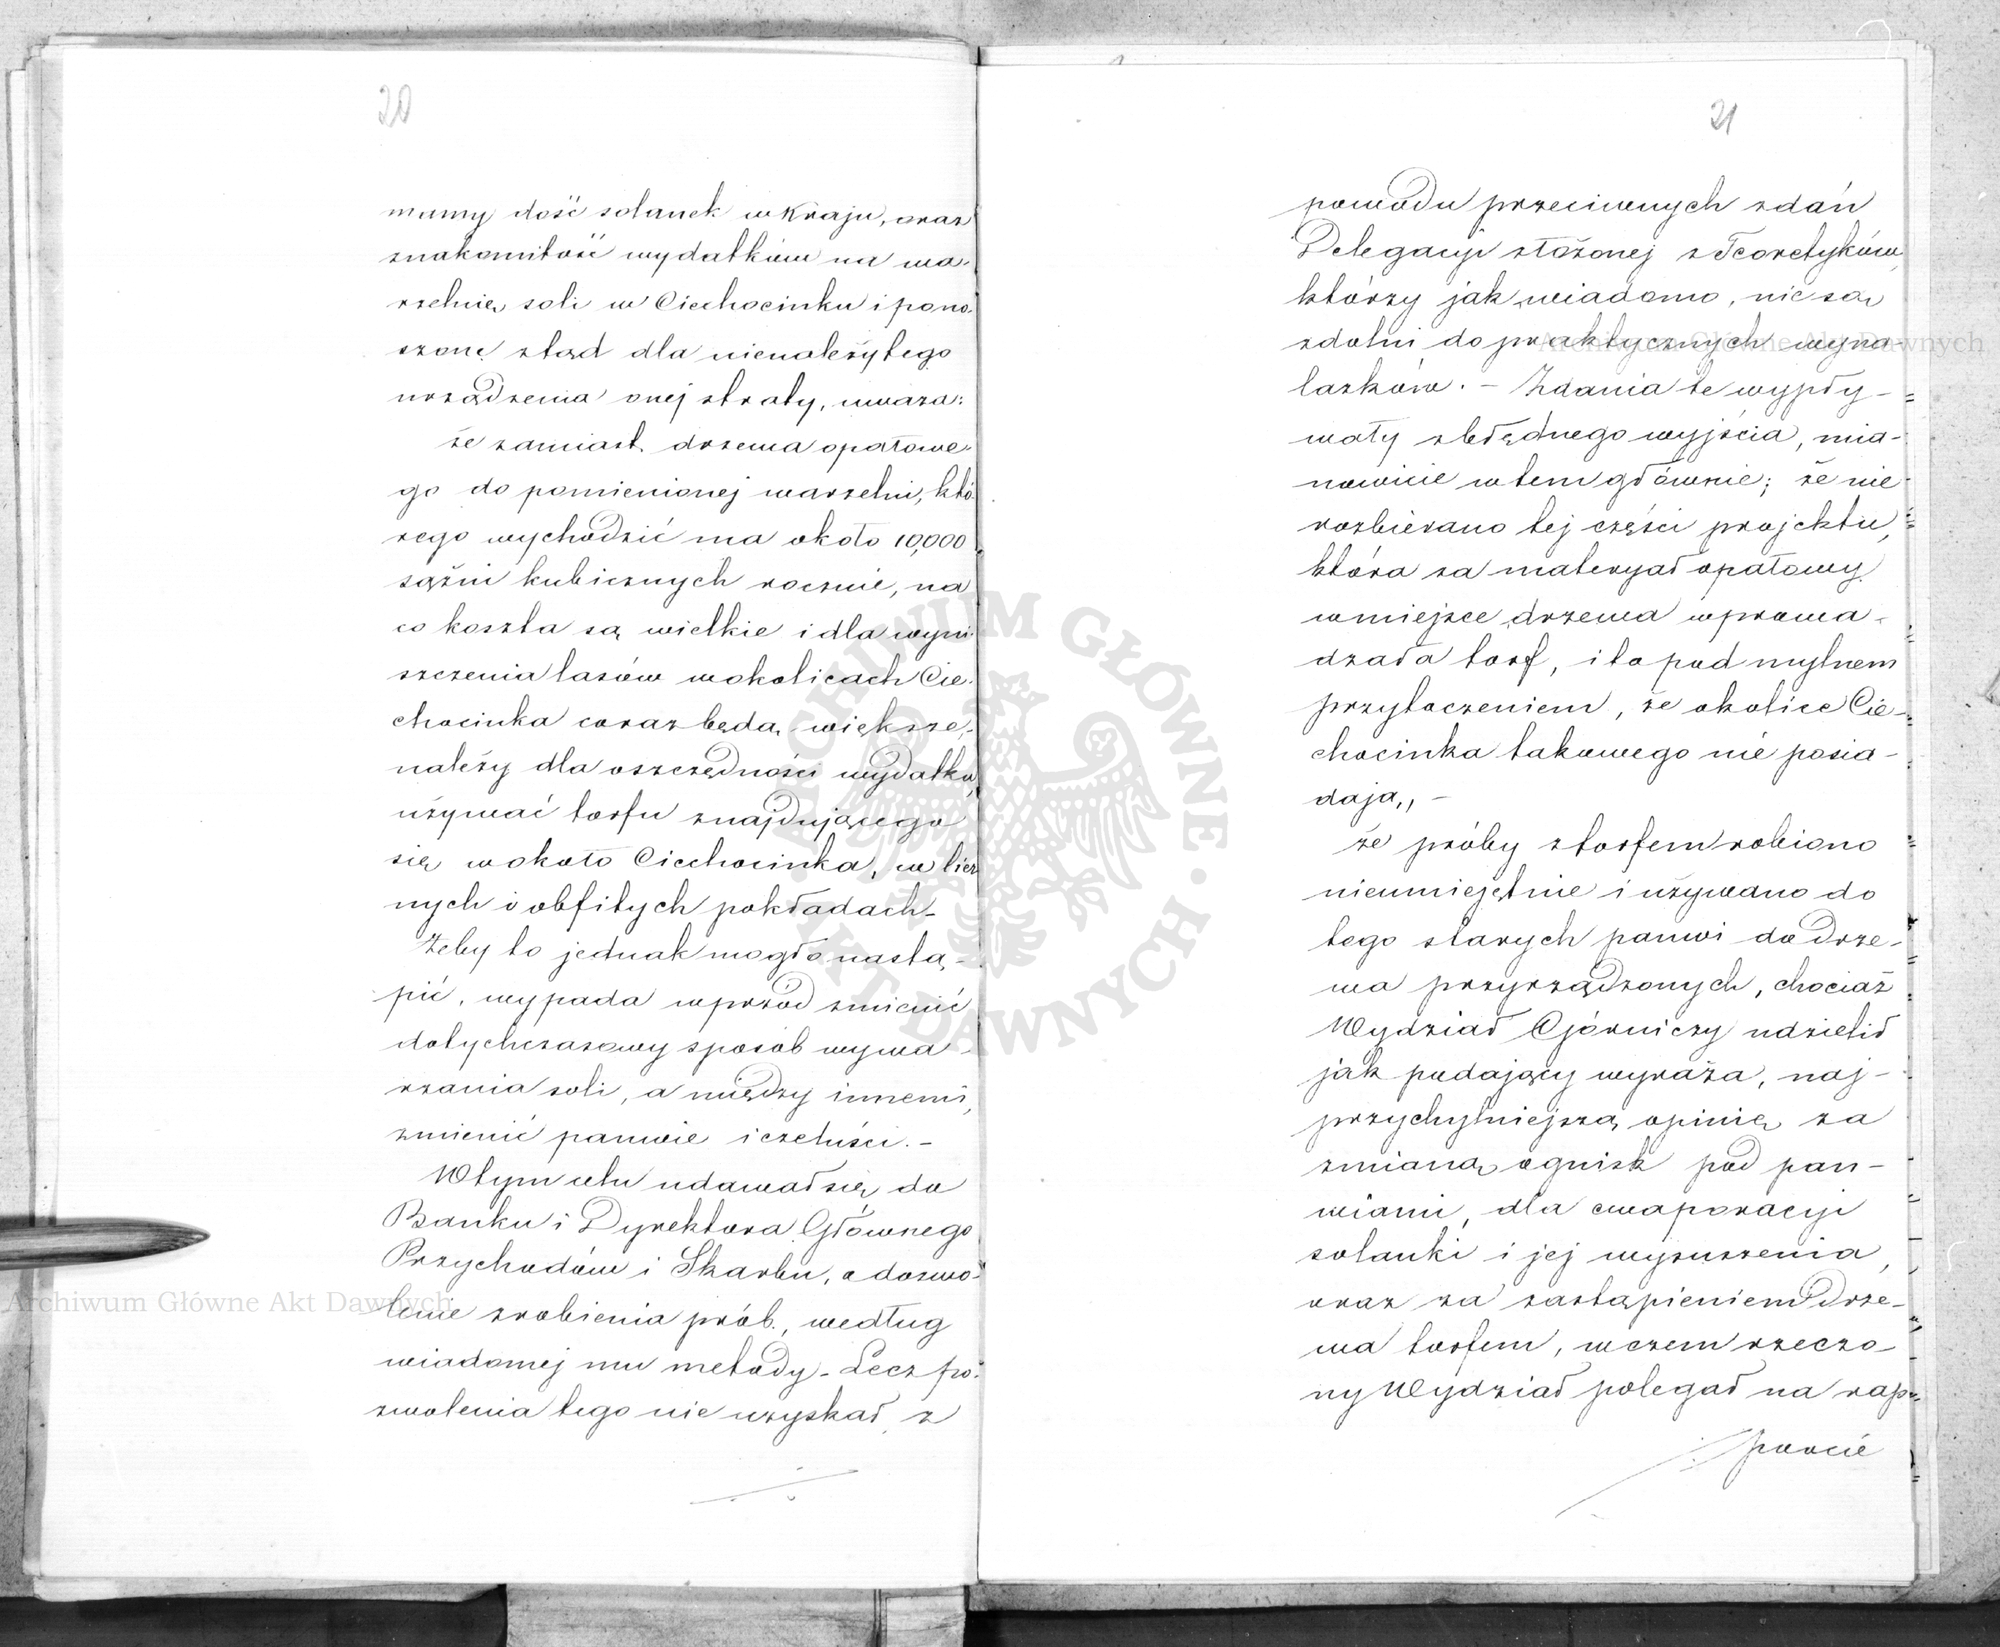 20
mamy dość solanek w Kraju, oraz
znakomitość wydatków na wa-
rzelnię soli w Ciechocinku i pono-
szone ztąd dla nienależytego
urządzenia onej straty, uważa:
że zamiast drzewa opałowe-
go do pomienionej warzelni, któ
rego wychodzić ma około 10,000
sążni kubicznych rocznie, na
co koszta są wielkie i dla wyni-
szczenia lasów w okolicach Cie-
chocinka coraz będą większe,-
należy dla oszczędności wydatku,
używać torfu znajdującego
się w około Ciechocinka, w licz
nych i obfitych pokładach-
Żeby to jednak mogło nastą-
pić, wypada wprzód zmienić
dotychczasowy sposób wywa-
rzania soli, a między innemi,
zmienić panwie i czeluści.-
W tym celu udawał się do
Banku i Dyrektora Głównego
Przychodów i Skarbu, o dozwo-
lenie zrobienia prób, według
wiadomej mu metody- Lecz po-
zwolenia tego nie uzyskał, z
21
powodu przeciwnych zdań
Delegacyi złożonej z Teoretyków,
którzy jak wiadomo, nie są
zdolni do praktycznych wyna-
lazków.- Zdania te wypły-
wały z błędnego wyjścia, mia-
nowicie w tem głównie; że nie
rozbierano tej części projektu,
która za materyał opałowy
w miejsce drzewa wprowa-
dzała torf, i to pod mylnem
przytoczeniem, że okolice Cie-
chocinka takowego nie posia-
dają,,-
że próby z torfem robiono
nieumiejętnie i używano do
tego starych panwi do drze-
wa przyrządzonych, chociaż
Wydział Górniczy udzielił
jak podający wyraża, naj-
przychylniejszą opinię za
zmianą ognisk pod pan-
wiami, dla ewaporacyi
solanki i jej wysuszenia,
oraz za zastąpieniem drze-
wa torfem, w czem rzeczo-
ny Wydział polegał na rap-
porcie
Archiwum Główne Akt Dawnych
Archiwum Główne Akt Dawnych
ARCHIWUM GŁÓWNE · AKT DAWNYCH ·